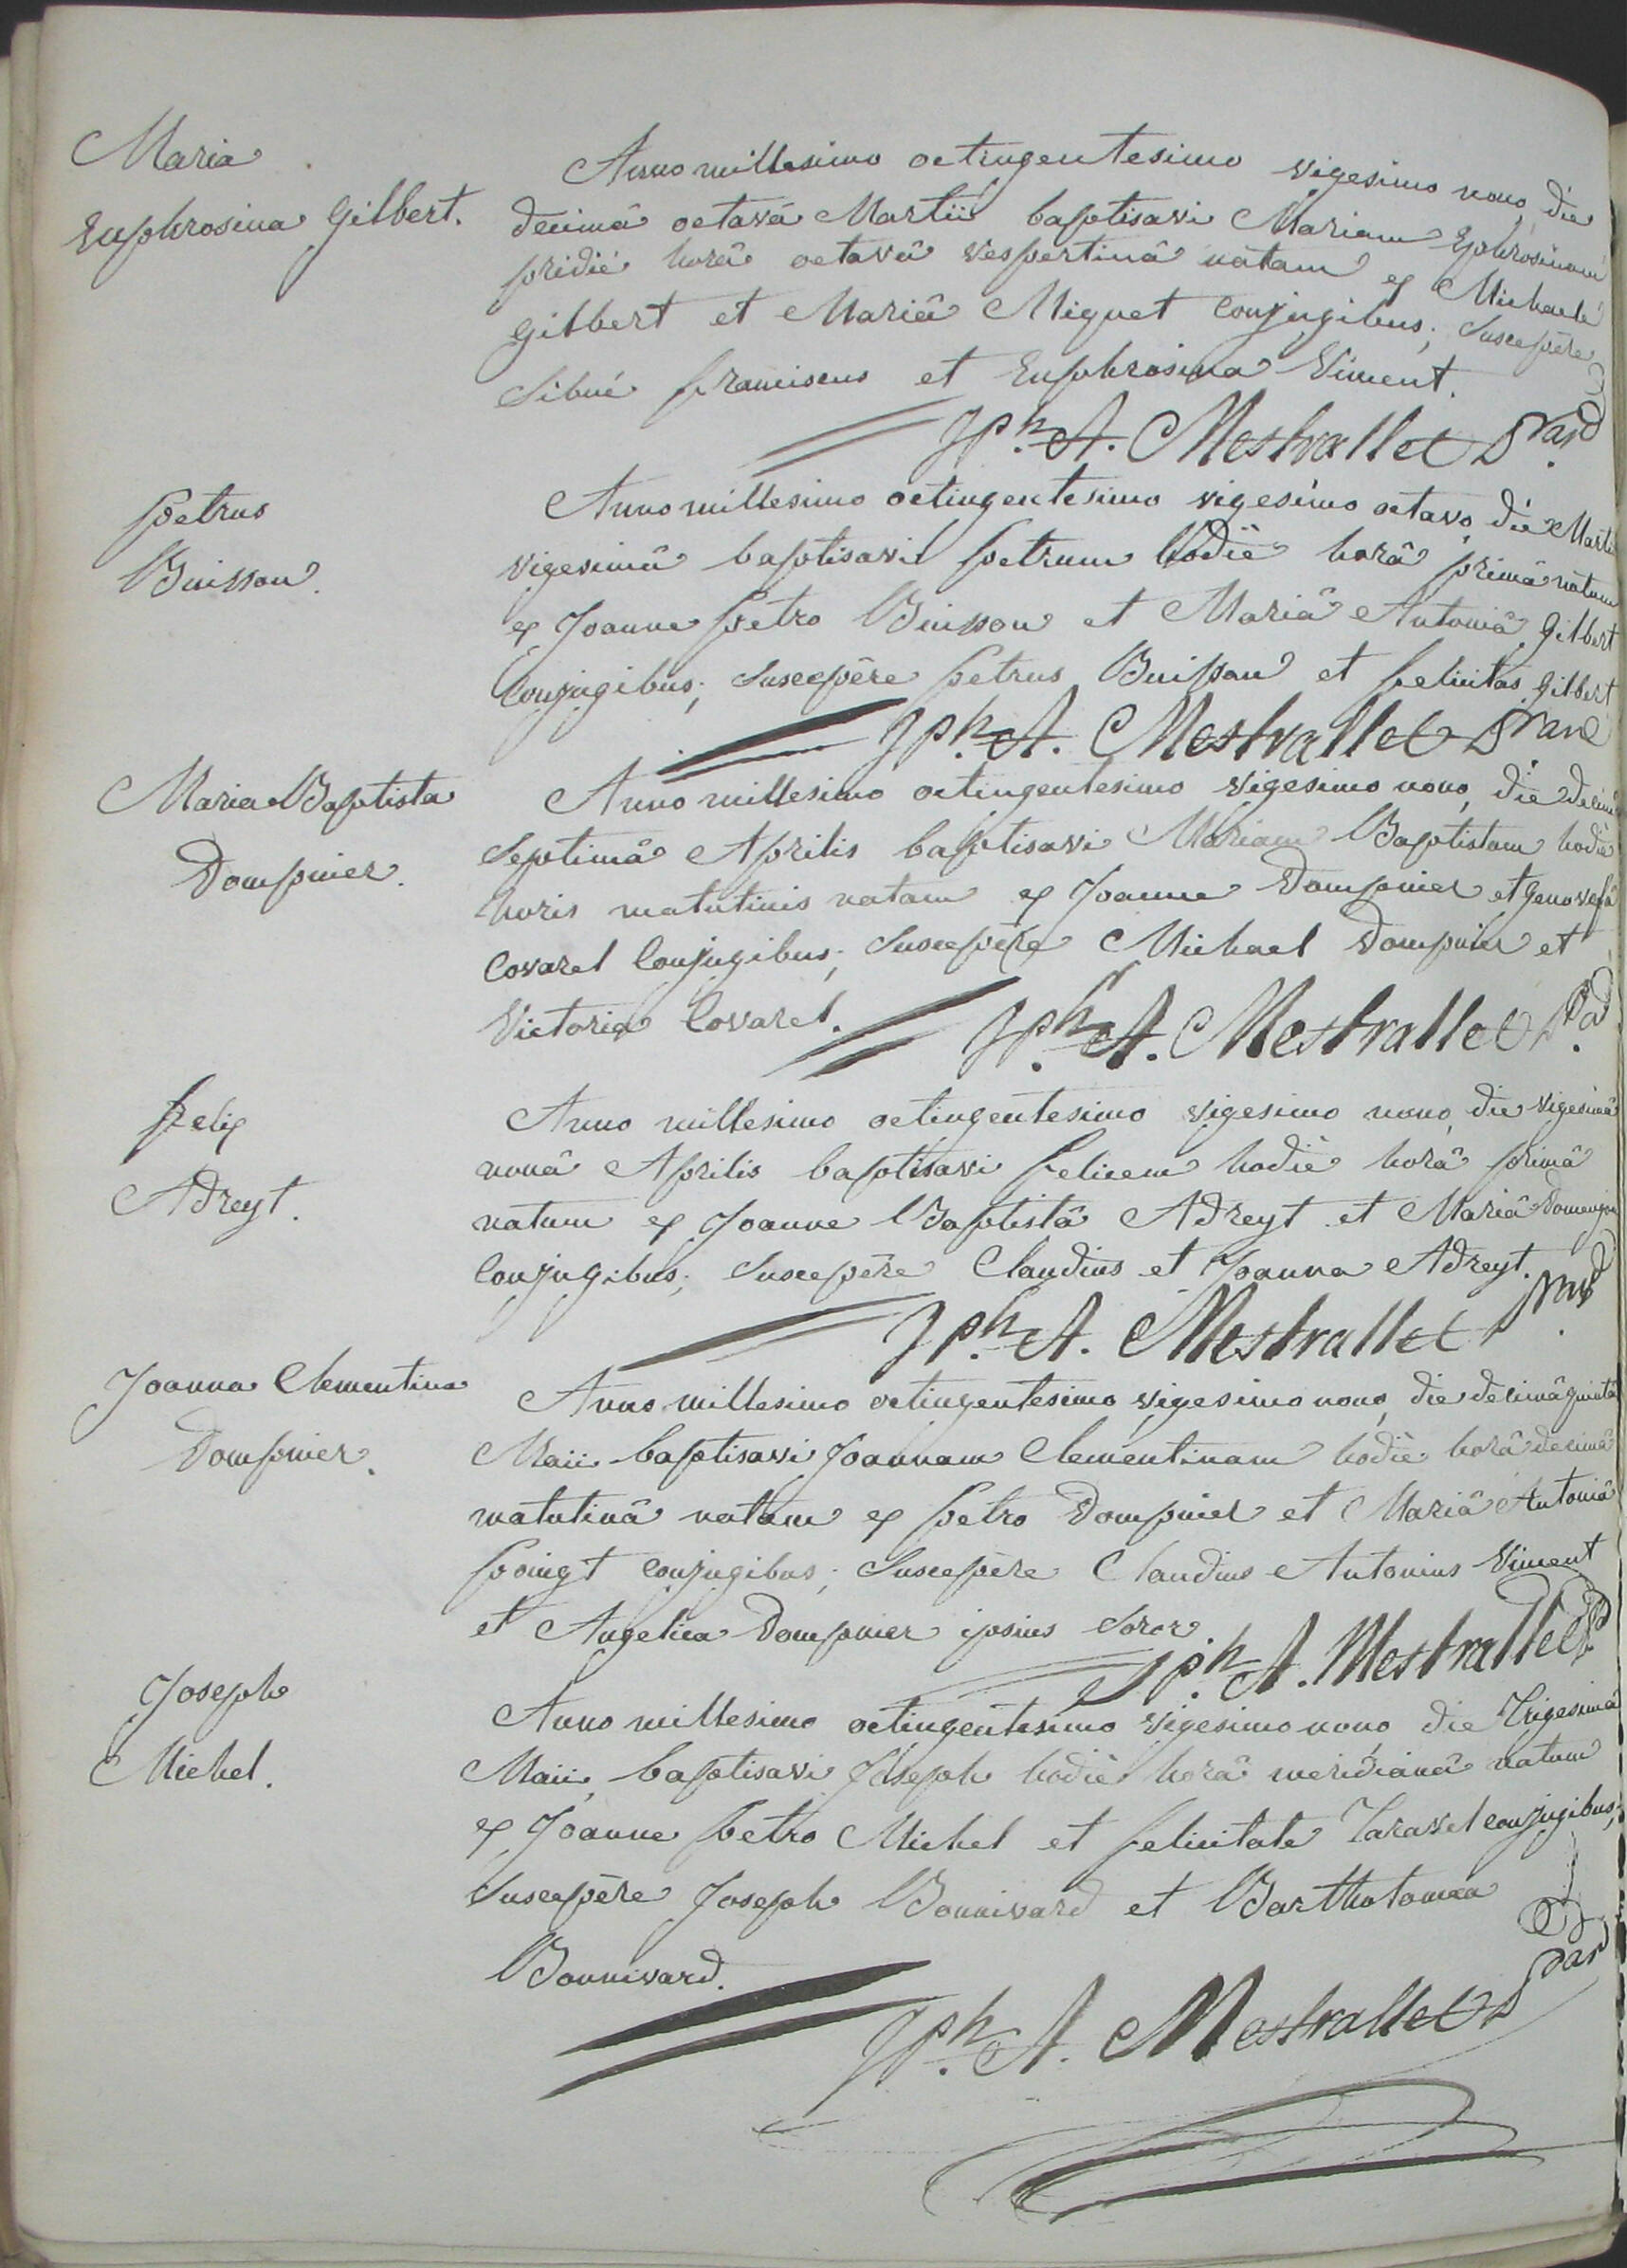 Maria
Euphrosina Gilbert.
Anno millesimo octingentesimo vigesimo nono, die
decimâ octavâ Martii baptisavi Mariam Ephrosinam
pridié horâ octavâ vespertinâ natam ex Michaele
Gilbert et Mariâ Miguet conjugibus; Suscepêre
Sibué franciscus et Euphrosina Viment.
Jph. A. Mestrallet
Petrus
Buisson.
Anno millesimo octingentesimo vigesimo octavo, die Martii
vigesimâ baptisavi petrum hodiè horâ primâ natum
ex Joanne petro Buisson et Mariâ Antoniâ Gilbert
Conjugibus; Suscepêre petrus Buisson et felicitas Gilbert
Jph. A. Mestrallet
Maria Baptista
Dompnier.
Anno millesimo octingentesimo vigesimo nono, die decimâ
Septimâ Aprilis baptisavi Mariam Baptistam hodiè
horis matutinis natam ex Joanne Dompnier et genovefâ
Covarel Conjugibus; Suscepêre Michael Dompnier et
Victoria Covarel.
Jph. A. Mestrallet
felix
Adreyt.
Anno millesimo octingentesimo vigesimo nono, die vigesimâ
nonâ Aprilis baptisavi felicem hodiè horâ primâ
natum ex Joanne Baptistâ Adreyt et Mariâ
Conjugibus; Suscepêre Claudius et Joanna Adreyt.
Jph. A. Mestrallet
Joanna Clementina
Dompnier.
Anno millesimo octingentesimo vigesimo nono, die decimâ quintâ
Maii baptisavi Joannam Clementinam hodiè horâ decimâ
matutinâ natam ex petro Dompnier et Mariâ Antoniâ
poingt conjugibus; Suscepêre Claudius Antonius Viment
et Angelica Dompnier ipsius Soror.
Jph. A. Mestrallet
Joseph
Michel.
Anno millesimo octingentesimo vigesimo nono, die Trigesimâ
Maii, baptisavi Joseph hodiè horâ meridianâ natum
ex Joanne petro Michel et felicitate Taravel conjugibus;
Suscepêre Joseph Bonnivard et Bartholomea
Bonnivard.
Jph. A. Mestrallet